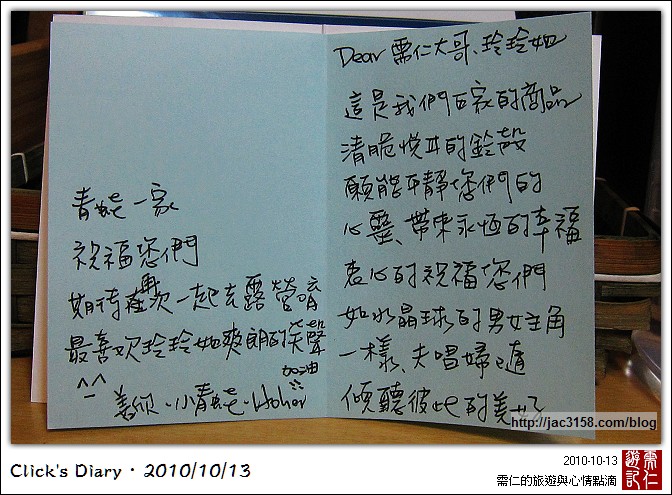 Dear 需仁大哥、玲玲姐
這是我們百家的商品
清脆悅耳的鈴殼
願能平靜您們的
心靈、帶來永恆的幸福
衷心的祝福您們
如水晶球的男女主角
一樣、夫唱婦隨
傾聽彼此的美好
青蛙一家
祝福您們
期待再次一起去露營唷
最喜歡玲玲姐爽朗的笑聲
^_^
加油
小青蛙、
http://jac3158.com/blog
Click's Diary・2010/10/13
2010-10-13
需仁的旅遊與心情點滴
需仁
遊記